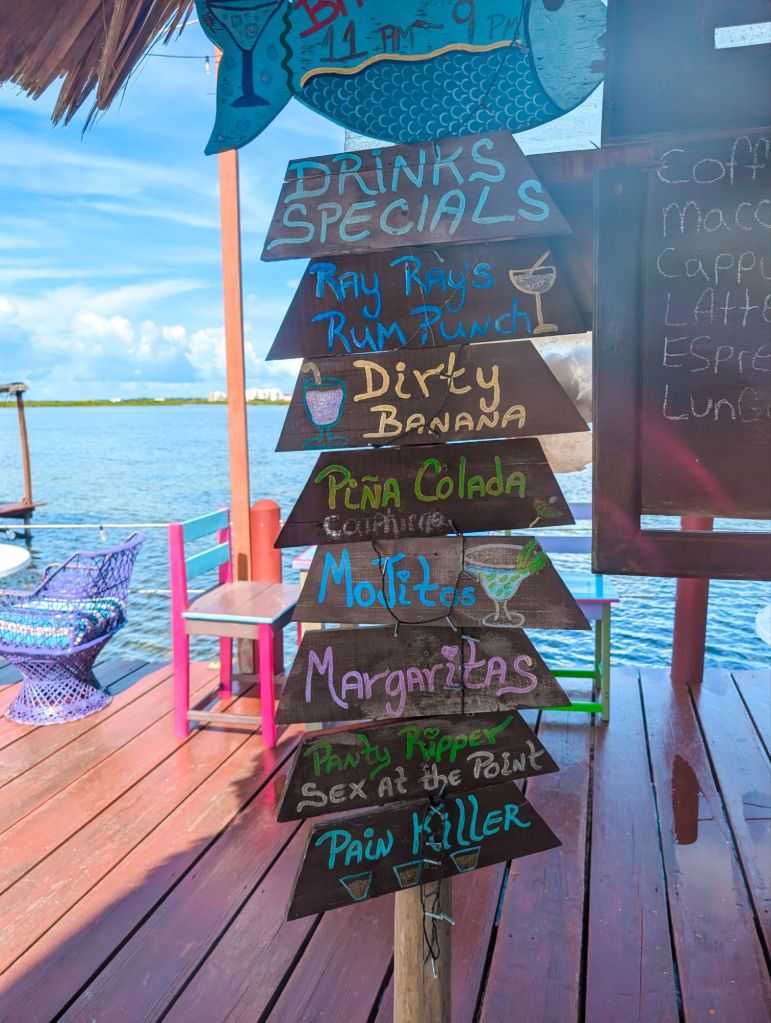 11 PM - 9 PM
DRINKS
SPECIALS
RAY RAY'S
RUM PUNCH
DIRTY
BANANA
PIÑA COLADA
MOJITOS
MARGARITAS
PANTY RIPPER
SEX AT THE POINT
PAIN KILLER
ESPRE